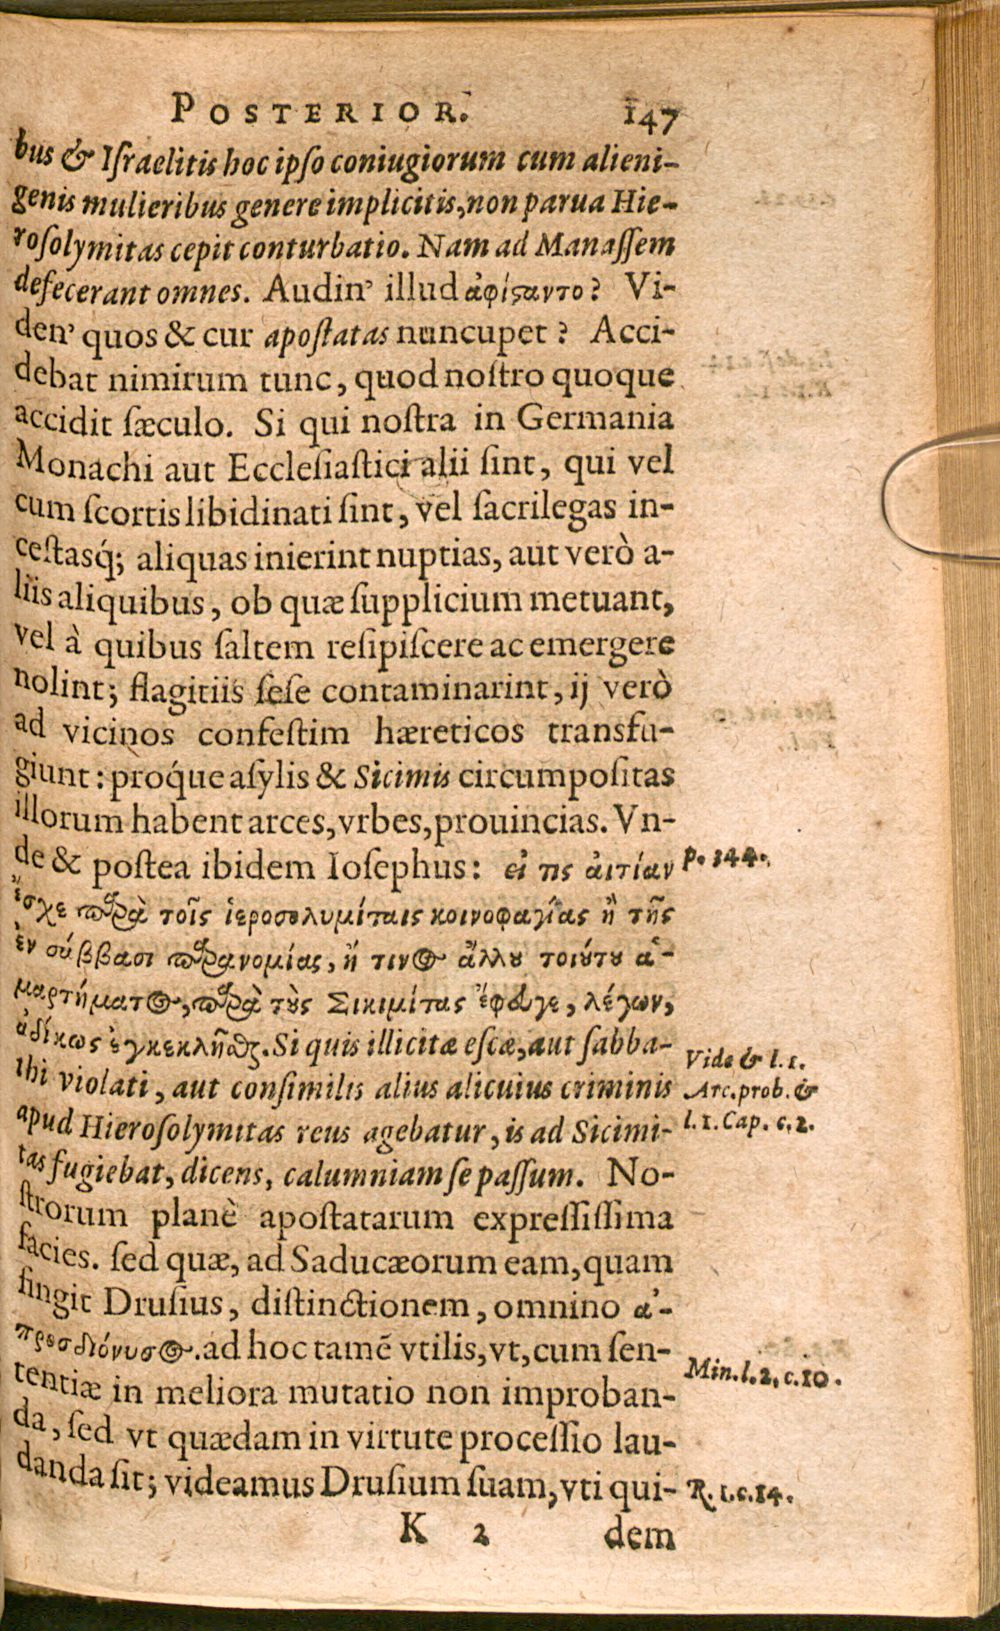 POSTERIOR. 147
bus & Iſraelitis hoc ipſo coniugiorum cum alieni-
genis mulieribus genere implicitis, non parua Hie-
roſolymitas cepit conturbatio. Nam ad Manaſſem
defecerant omnes. Audin' illud ἀφίϛαντο? Vi-
den' quos & cur apoſtatas nuncupet? Acci-
debat nimirum tunc, quod noſtro quoque
accidit ſæculo. Si qui noſtra in Germania
Monachi aut Eccleſiaſtici alii ſint, qui vel
cum ſcortis libidinati ſint, vel ſacrilegas in-
ceſtasq́; aliquas inierint nuptias, aut verò a-
liis aliquibus, ob quæ ſupplicium metuant,
vel à quibus ſaltem reſipiſcere ac emergere
nolint; flagitiis ſeſe contaminarint, ij verò
ad vicinos confeſtim hæreticos transfu-
giunt: proq́ue aſylis & Sicimis circumpoſitas
illorum habent arces, vrbes, prouincias. Vn-
de & poſtea ibidem Ioſephus: εἰ τις αἰτίαν
ἔσχε παρὰ τοῖς ἱεροσολυμίταις κοινοφαγίας ἢ τῆς
ἐν σάββασι παρανομίας, ἤ τινος ἄλλου τοιούτου ἁ-
μαρτήματος, παρὰ τοὺς Σικιμίτας ἔφευγε, λέγων,
ἀδίκως ἐγκεκλῆσθαι. Si quis illicitæ eſcæ, aut ſabba-
thi violati, aut conſimilis alius alicuius criminis
apud Hieroſolymitas reus agebatur, is ad Sicimi-
tas fugiebat, dicens, calumniam ſe paſſum. No-
ſtrorum planè apoſtatarum expreſſiſſima
facies. ſed quæ, ad Saducæorum eam, quam
fingit Druſius, diſtinctionem, omnino ἀ-
προσδιόνυσος. ad hoc tamē vtilis, vt, cum ſen-
tentiæ in meliora mutatio non improban-
da, ſed vt quædam in virtute proceſſio lau-
danda ſit; videamus Druſium ſuam, vti qui-
K 2 dem
p. 344.
Vide & l. 1.
Arc. prob. &
l. 1. Cap. c. 2.
Min. l. 2, c. 10.
R. 1. c. 14.